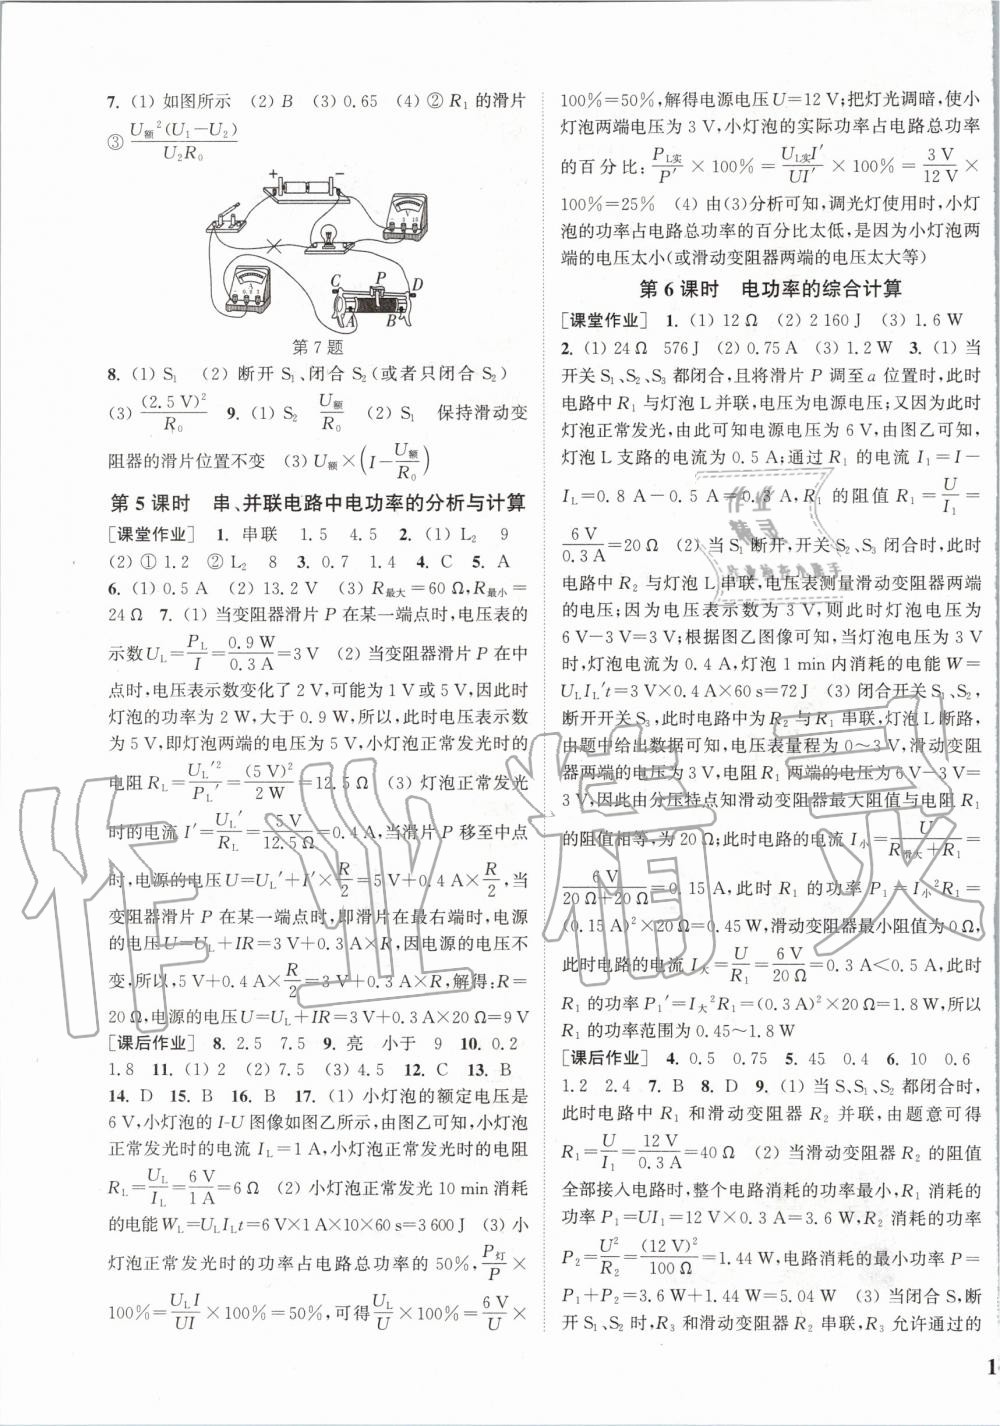 7. (1) 如图所示 (2) B (3) 0.65 (4) ② R₁ 的滑片
③ U额²(U₁-U₂)/U₂R₀
第 7 题
8. (1) S₁ (2) 断开 S₁、闭合 S₂(或者只闭合 S₂)
(3) (2.5 V)²/R₀ 9. (1) S₂ U额/R₀ (2) S₁ 保持滑动变
阻器的滑片位置不变 (3) U额×(I-U额/R₀)
第 5 课时 串、并联电路中电功率的分析与计算
[课堂作业] 1. 串联 1.5 4.5 2. (1) L₂ 9
(2) ① 1.2 ② L₂ 8 3. 0.7 1.4 4. C 5. A
6. (1) 0.5 A (2) 13.2 V (3) R最大=60 Ω,R最小=
24 Ω 7. (1) 当变阻器滑片 P 在某一端点时,电压表的
示数 U_L=P_L/I=0.9 W/0.3 A=3 V (2) 当变阻器滑片 P 在中
点时,电压表示数变化了 2 V,可能为 1 V 或 5 V,因此时
灯泡的功率为 2 W,大于 0.9 W,所以,此时电压表示数
为 5 V,即灯泡两端的电压为 5 V,小灯泡正常发光时的
电阻 R_L=U_L'²/P_L'=(5 V)²/2 W=12.5 Ω (3) 灯泡正常发光
时的电流 I'=U_L'/R_L=5 V/12.5 Ω=0.4 A,当滑片 P 移至中点
时,电源的电压 U=U_L'+I'×R/2=5 V+0.4 A×R/2,当
变阻器滑片 P 在某一端点时,即滑片在最右端时,电源
的电压 U=U_L+IR=3 V+0.3 A×R,因电源的电压不
变,所以,5 V+0.4 A×R/2=3 V+0.3 A×R,解得:R=
20 Ω,电源的电压 U=U_L+IR=3 V+0.3 A×20 Ω=9 V
[课后作业] 8. 2.5 7.5 9. 亮 小于 9 10. 0.2
1.8 11. (1) 2 (2) 7.5 (3) 4.5 12. C 13. B
14. D 15. B 16. B 17. (1) 小灯泡的额定电压是
6 V,小灯泡的 I-U 图像如图乙所示,由图乙可知,小灯泡
正常发光时的电流 I_L=1 A,小灯泡正常发光时的电阻
R_L=U_L/I_L=6 V/1 A=6 Ω (2) 小灯泡正常发光 10 min 消耗
的电能 W_L=U_LI_Lt=6 V×1 A×10×60 s=3 600 J (3) 小
灯泡正常发光时的功率占电路总功率的 50%,P灯/P×
100%=U_LI/UI×100%=50%,可得U_L/U×100%=6 V/U×
100%=50%,解得电源电压 U=12 V;把灯光调暗,使小
灯泡两端电压为 3 V,小灯泡的实际功率占电路总功率
的百分比:P_L实/P'×100%=U_L实I'/UI'×100%=3 V/12 V×
100%=25% (4) 由(3)分析可知,调光灯使用时,小灯
泡的功率占电路总功率的百分比太低,是因为小灯泡两
端的电压太小(或滑动变阻器两端的电压太大等)
第 6 课时 电功率的综合计算
[课堂作业] 1. (1) 12 Ω (2) 2 160 J (3) 1.6 W
2. (1) 24 Ω 576 J (2) 0.75 A (3) 1.2 W 3. (1) 当
开关 S₁、S₂、S₃ 都闭合,且将滑片 P 调至 a 位置时,此时
电路中 R₁ 与灯泡 L 并联,电压为电源电压;又因为此时
灯泡正常发光,由此可知电源电压为 6 V,由图乙可知,
灯泡 L 支路的电流为 0.5 A;通过 R₁ 的电流 I₁=I-
I_L=0.8 A-0.5 A=0.3 A,R₁ 的阻值 R₁=U/I₁=
6 V/0.3 A=20 Ω (2) 当 S₁ 断开,开关 S₂、S₃ 闭合时,此时
电路中 R₂ 与灯泡 L 串联,电压表测量滑动变阻器两端
的电压;因为电压表示数为 3 V,则此时灯泡电压为
6 V-3 V=3 V;根据图乙图像可知,当灯泡电压为 3 V
时,灯泡电流为 0.4 A,灯泡 1 min 内消耗的电能 W=
U_LI_L't=3 V×0.4 A×60 s=72 J (3) 闭合开关 S₁、S₂,
断开开关 S₃,此时电路中为 R₂ 与 R₁ 串联,灯泡 L 断路,
由题中给出数据可知,电压表量程为 0~3 V,滑动变阻
器两端的电压为 3 V 时,电阻 R₁ 两端的电压为 6 V-3 V
=3 V;因此由分压特点知滑动变阻器最大阻值与电阻 R₁
的阻值相等,为 20 Ω;此时电路的电流 I小=U/(R滑大+R₁)=
6 V/(20 Ω+20 Ω)=0.15 A,此时 R₁ 的功率 P₁=I小²R₁=
(0.15 A)²×20 Ω=0.45 W;滑动变阻器最小阻值为 0 Ω,
此时电路的电流 I大=U/R₁=6 V/20 Ω=0.3 A<0.5 A,此时
R₁ 的功率 P₁'=I大²R₁=(0.3 A)²×20 Ω=1.8 W,所以
R₁ 的功率范围为 0.45~1.8 W
[课后作业] 4. 0.5 0.75 5. 45 0.4 6. 10 0.6
1.2 2.4 7. B 8. D 9. (1) 当 S、S₁、S₂ 都闭合时,
此时电路中 R₁ 和滑动变阻器 R₂ 并联,由题意可得
R₁=U/I₁=12 V/0.3 A=40 Ω (2) 当滑动变阻器 R₂ 的阻值
全部接入电路时,整个电路消耗的功率最小,R₁ 消耗的
功率 P₁=UI₁=12 V×0.3 A=3.6 W,R₂ 消耗的功率
P₂=U²/R₂=(12 V)²/100 Ω=1.44 W,电路消耗的最小功率 P=
P₁+P₂=3.6 W+1.44 W=5.04 W (3) 当闭合 S,断
开 S₁、S₂ 时,R₃ 和滑动变阻器 R₂ 串联,R₃ 允许通过的
作业精灵